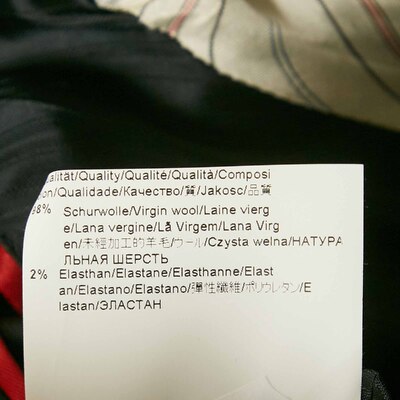 alität/Quality/Qualité/Qualità/Composi
on/Qualidade/Качество/質/Jakosc/品質
98% Schurwolle/Virgin wool/Laine vierg
e/Lana vergine/Lã Virgem/Lana Virg
en/未經加工的羊毛/ウール/Czysta welna/НАТУРА
ЛЬНАЯ ШЕРСТЬ
2% Elasthan/Elastane/Elasthanne/Elast
an/Elastano/Elastano/彈性纖維/ポリウレタン/E
lastan/ЭЛАСТАН